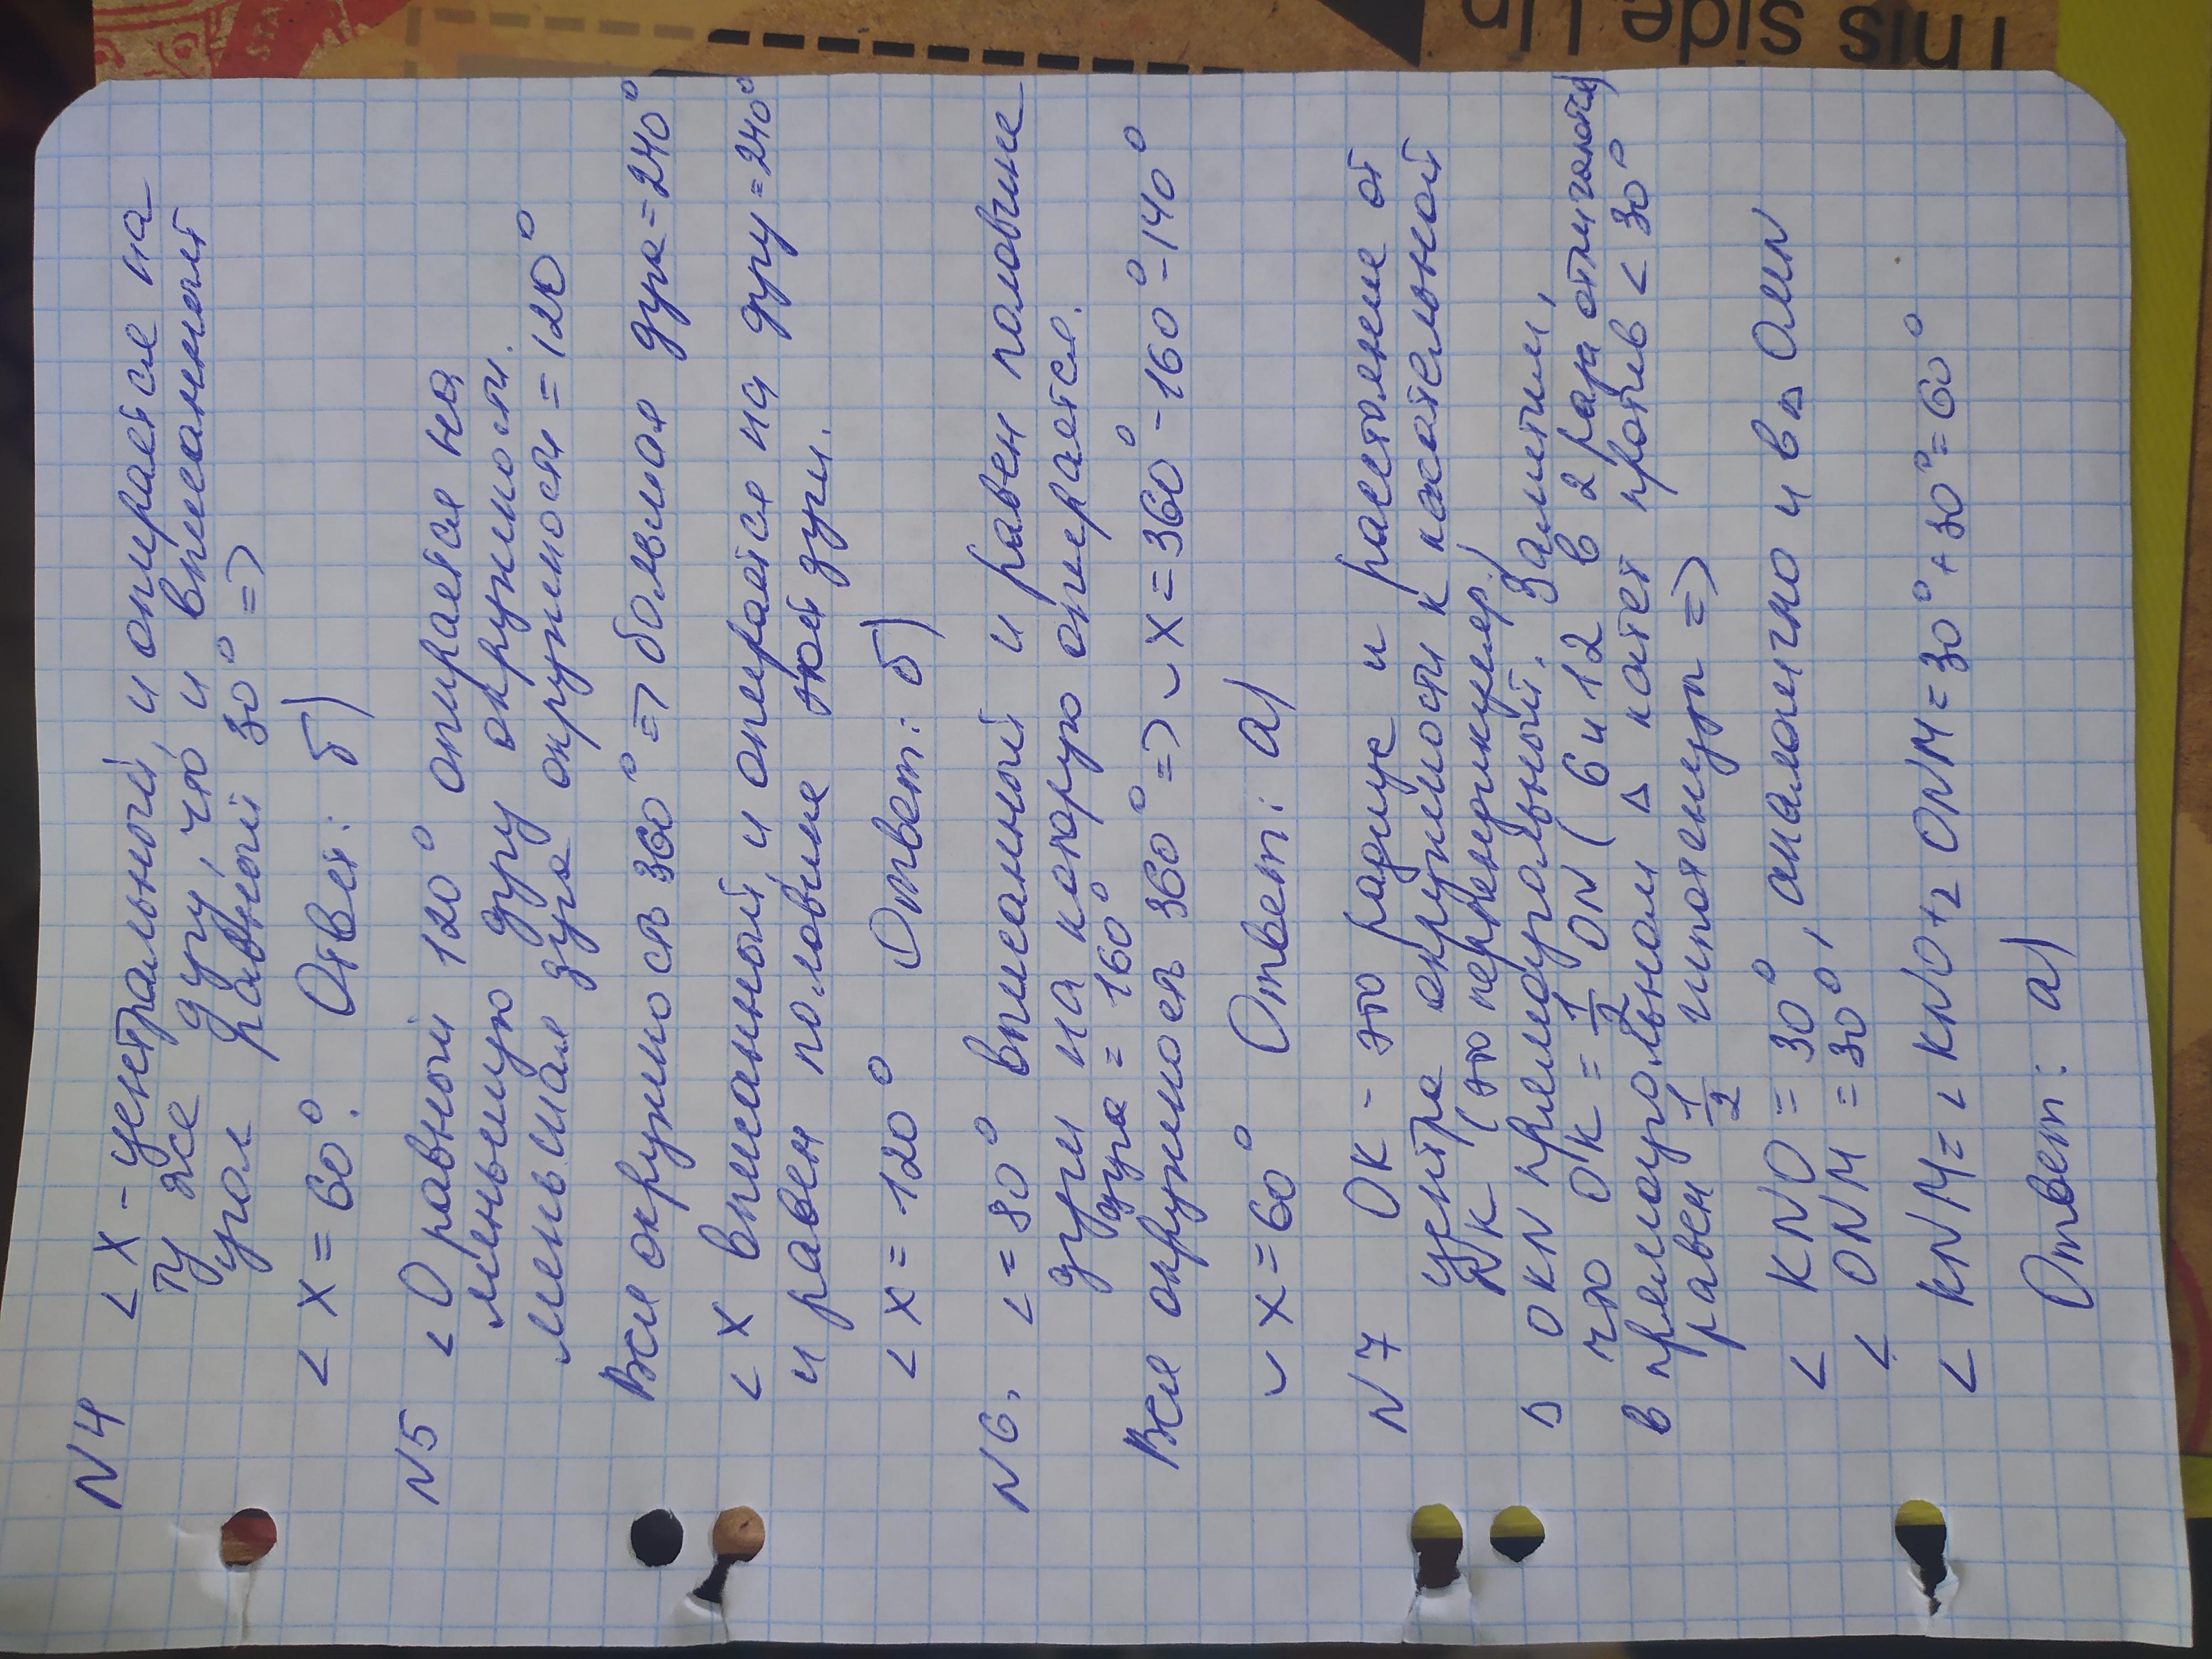 This side Up
N4 < X - центральный, и опирается на
ту же дугу, что и вписанный
угол равный 30° =>
< X = 60°. Ответ: б)
N5 < О равный 120° опирается на
меньшую дугу окружности.
меньшая дуга окружности = 120°
Вся окружность 360° => большая дуга = 240°
< X вписанный, и опирается на дугу = 240°
и равен половине этой дуги.
< X = 120° Ответ: б)
N6. < = 80° вписанный и равен половине
дуги на которую опирается.
дуга = 160°
Вся окружность 360° => ◡ X = 360° - 160° - 140°
◡ X = 60° Ответ: а)
N7 ОК - это радиус и расстояние от
центра окружности к касательной
NK (это перпендикуляр)
△ OKN прямоугольный. Заметим,
что OK = 1/2 ON (6 и 12 в 2 раза отличаются)
в прямоугольном △ катет против < 30°
равен 1/2 гипотенузы =>
< KNO = 30°, аналогично и в △ OMN
< ONM = 30°
< KNM = < KNO + < ONM = 30° + 30° = 60°
Ответ: а)